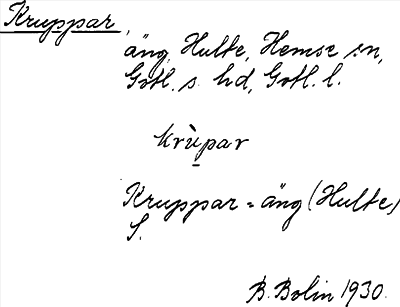 Kruppar,
äng, Hulte, Hemse sn,
Gotl. s. hd, Gotl. l.
krùpar
Kruppar = äng (Hulte)
S.
B. Bolin 1930.